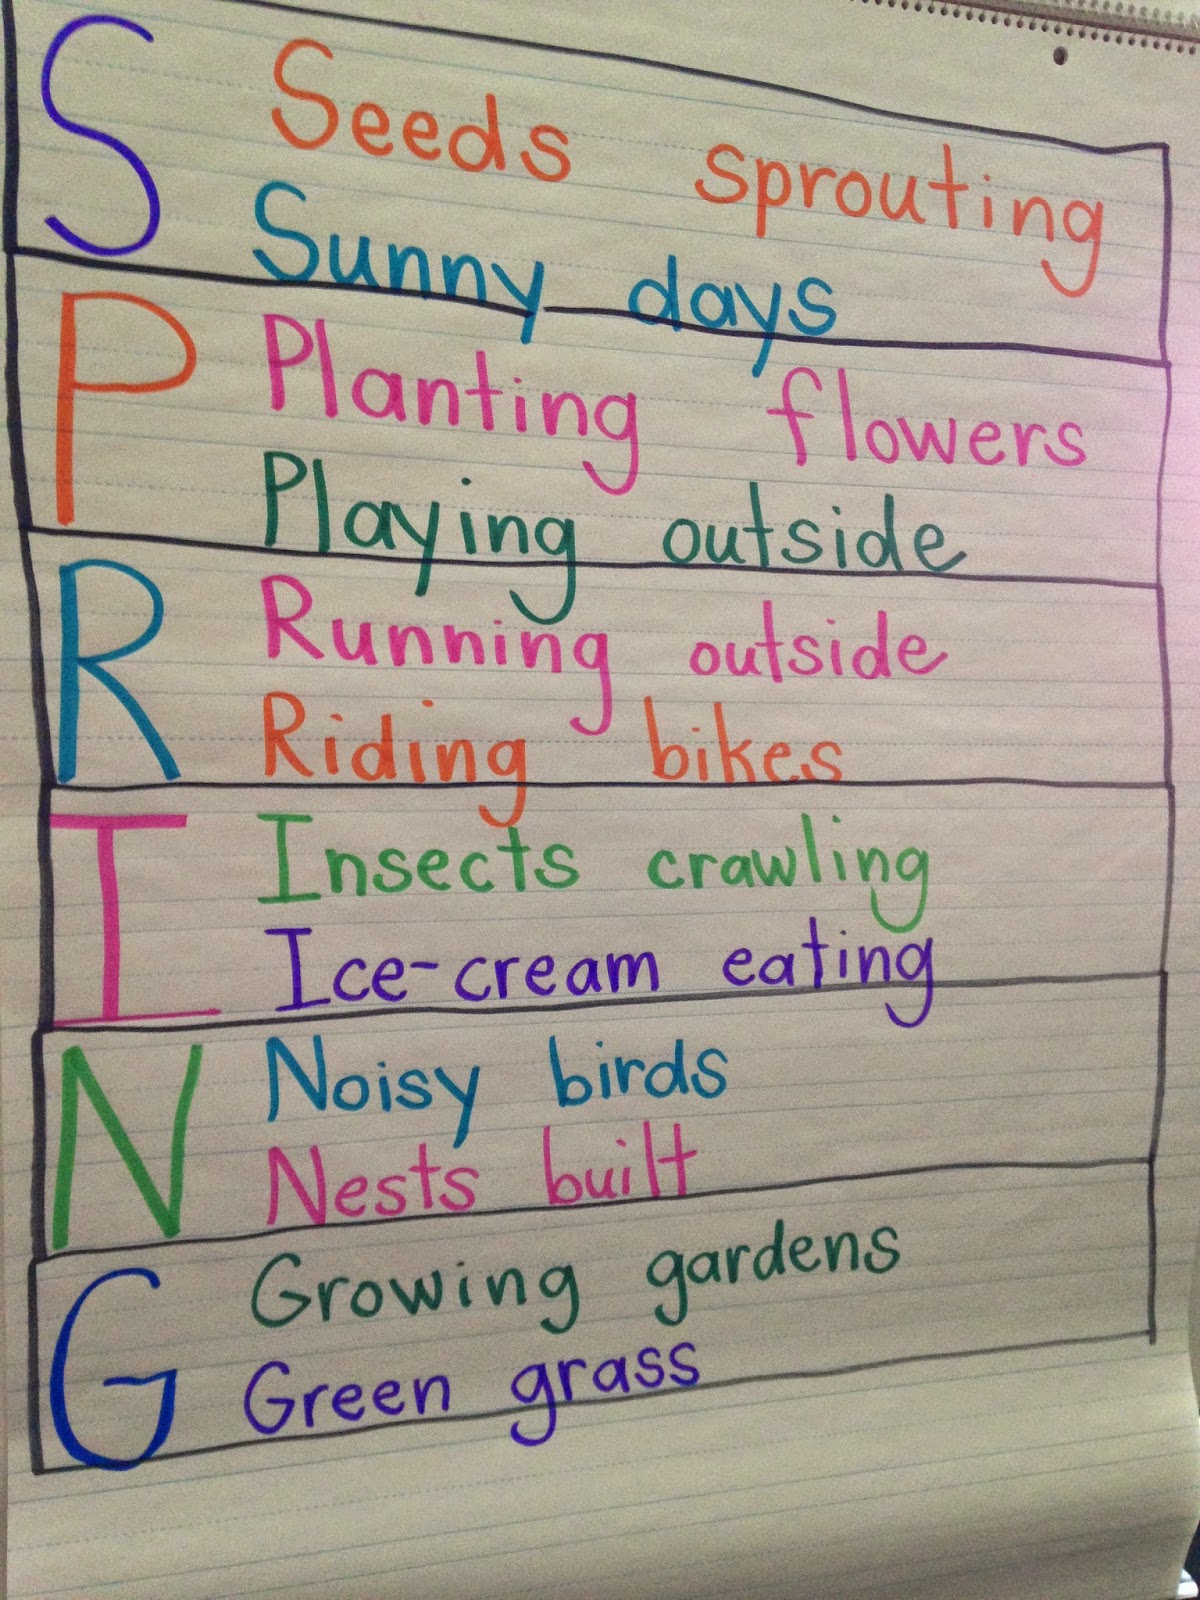 S Seeds sprouting
Sunny days
P Planting flowers
Playing outside
R Running outside
Riding bikes
I Insects crawling
Ice-cream eating
N Noisy birds
Nests built
G Growing gardens
Green grass